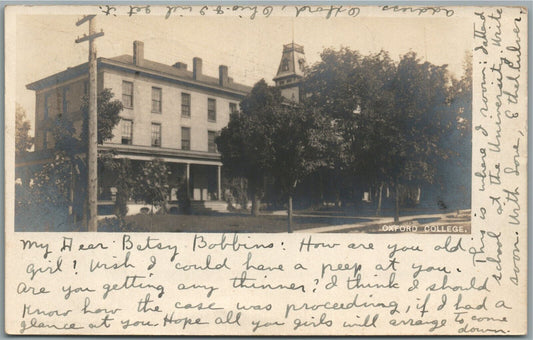 OXFORD COLLEGE.
My Dear Betsy Bobbins: How are you old
girl? Wish I could have a peep at you.
Are you getting any thinner? I think I should
know how the case was proceeding, if I had a
glance at you. Hope all you girls will arrange to come
down.
This is where I room: I attend
school at the University. Write
soon. With love, Ethel Culver.
address Oxford, Ohio & I will get it